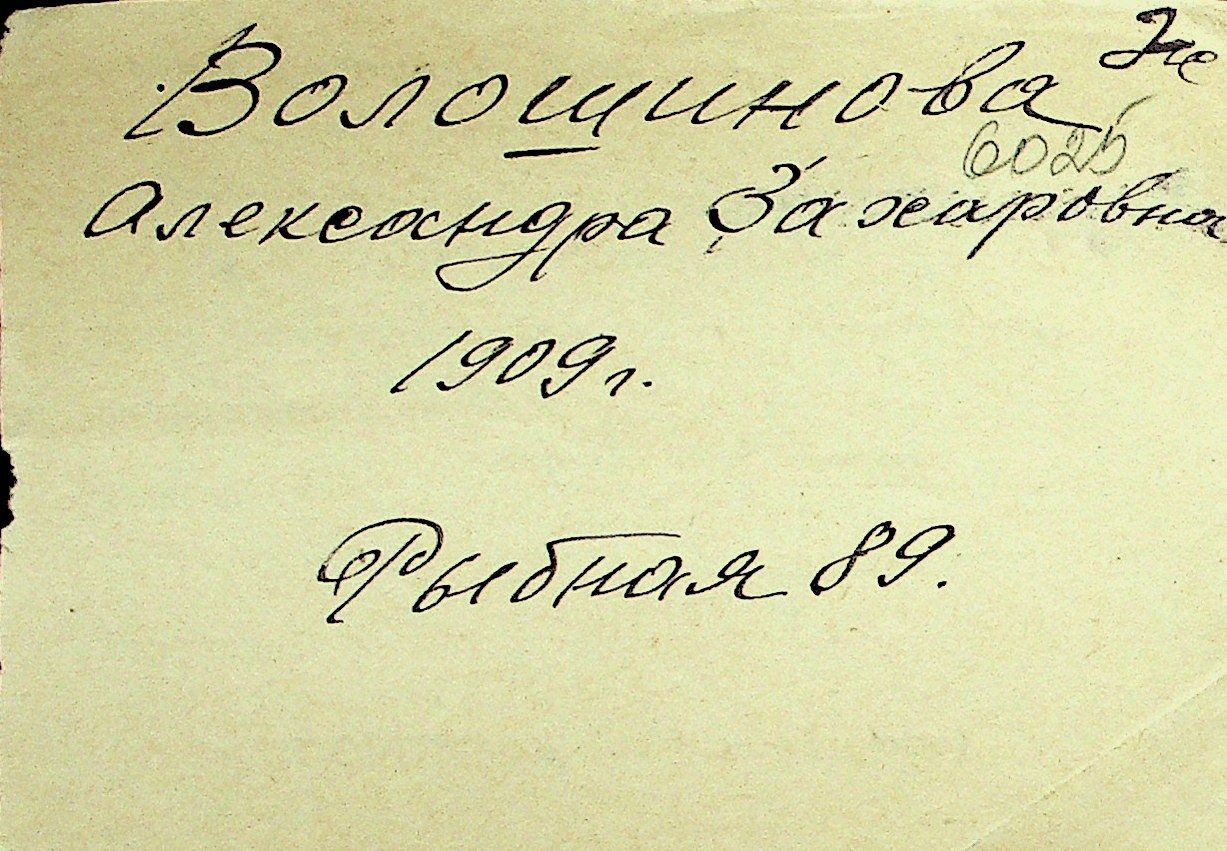 Волошинова
6025
Александра Захаровна
1909 г.
Рыбная 89.